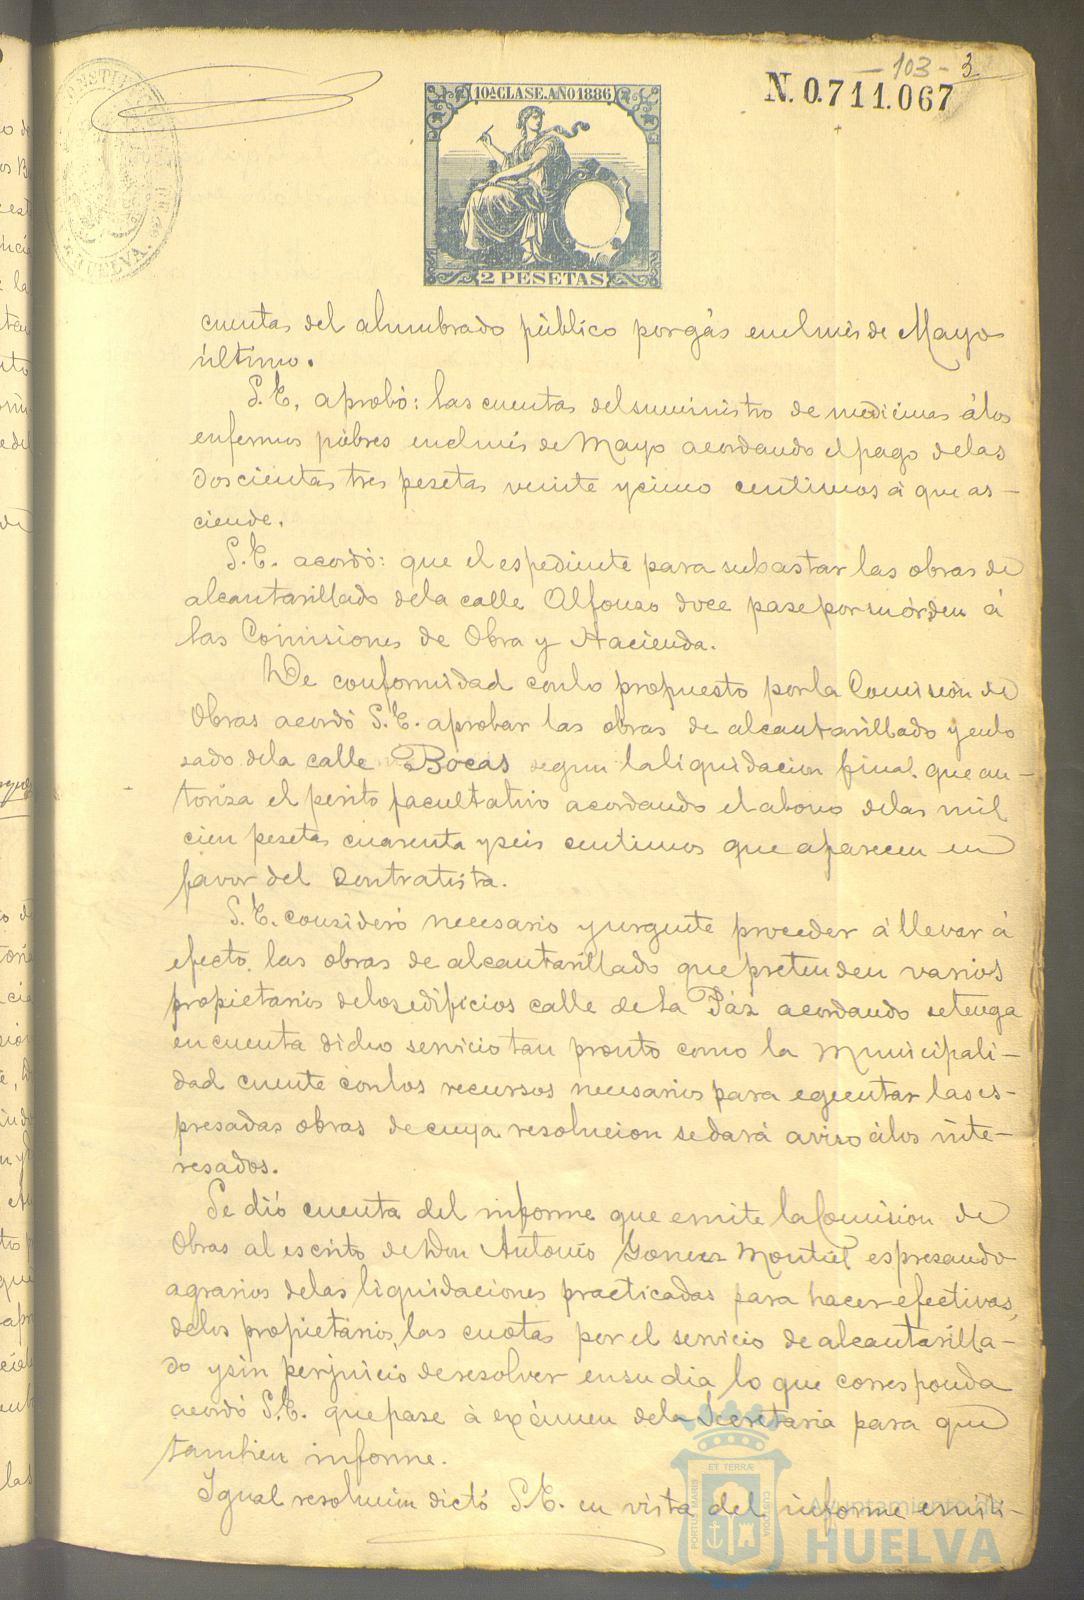 103 - 3
N. 0.711.067
10ª CLASE. AÑO 1886
2 PESETAS
HUELVA.
cuentas del alumbrado público por gás en el mes de Mayo
último.
S. E. aprobó: las cuentas del suministro de medicinas á los
enfermos póbres en el més de Mayo acordando el pago de las
doscientas tres pesetas veinte y cinco centimos á que as-
ciende.
S. E. acordó: que el espediente para subastar las obras de
alcantarillado de la calle Alfonso doce pase por su órden á
las Comisiones de Obra y Hacienda.
De conformidad con lo propuesto por la Comisión de
Obras acordó S. E. aprobar las obras de alcantarillado y enlo
sado de la calle Bocas segun la liquidacion final que au-
toriza el perito facultativo acordando el abono de las mil
cien pesetas cuarenta y seis centimos que aparecen en
favor del Contratista.
S. E. consideró necesario y urgente proceder á llevar á
efecto las obras de alcantarillado que pretenden varios
propietarios de los edificios calle de la Páz acordando se tenga
en cuenta dicho servicio tan pronto como la Municipali-
dad cuente con los recursos necesarios para egecutar las es-
presadas obras de cuya resolucion se dará aviso á los inte-
resados.
Se dió cuenta del informe que emite la Comision de
Obras al escrito de Don Antonio Gomez Montiel espresando
agravios de las liquidaciones practicadas para hacer efectivas
de los propietarios, las cuotas por el servicio de alcantarilla-
do y sin perjuicio de resolver en su dia lo que corresponda
acordó S. E. que pase á exámen de la Secretaria para que
tambien informe.
Igual resolucion dictó S. E. en vista del informe emiti-
ET TERRÆ
PORTUS MARIS
CUSTODIA
Ayuntamiento de
HUELVA